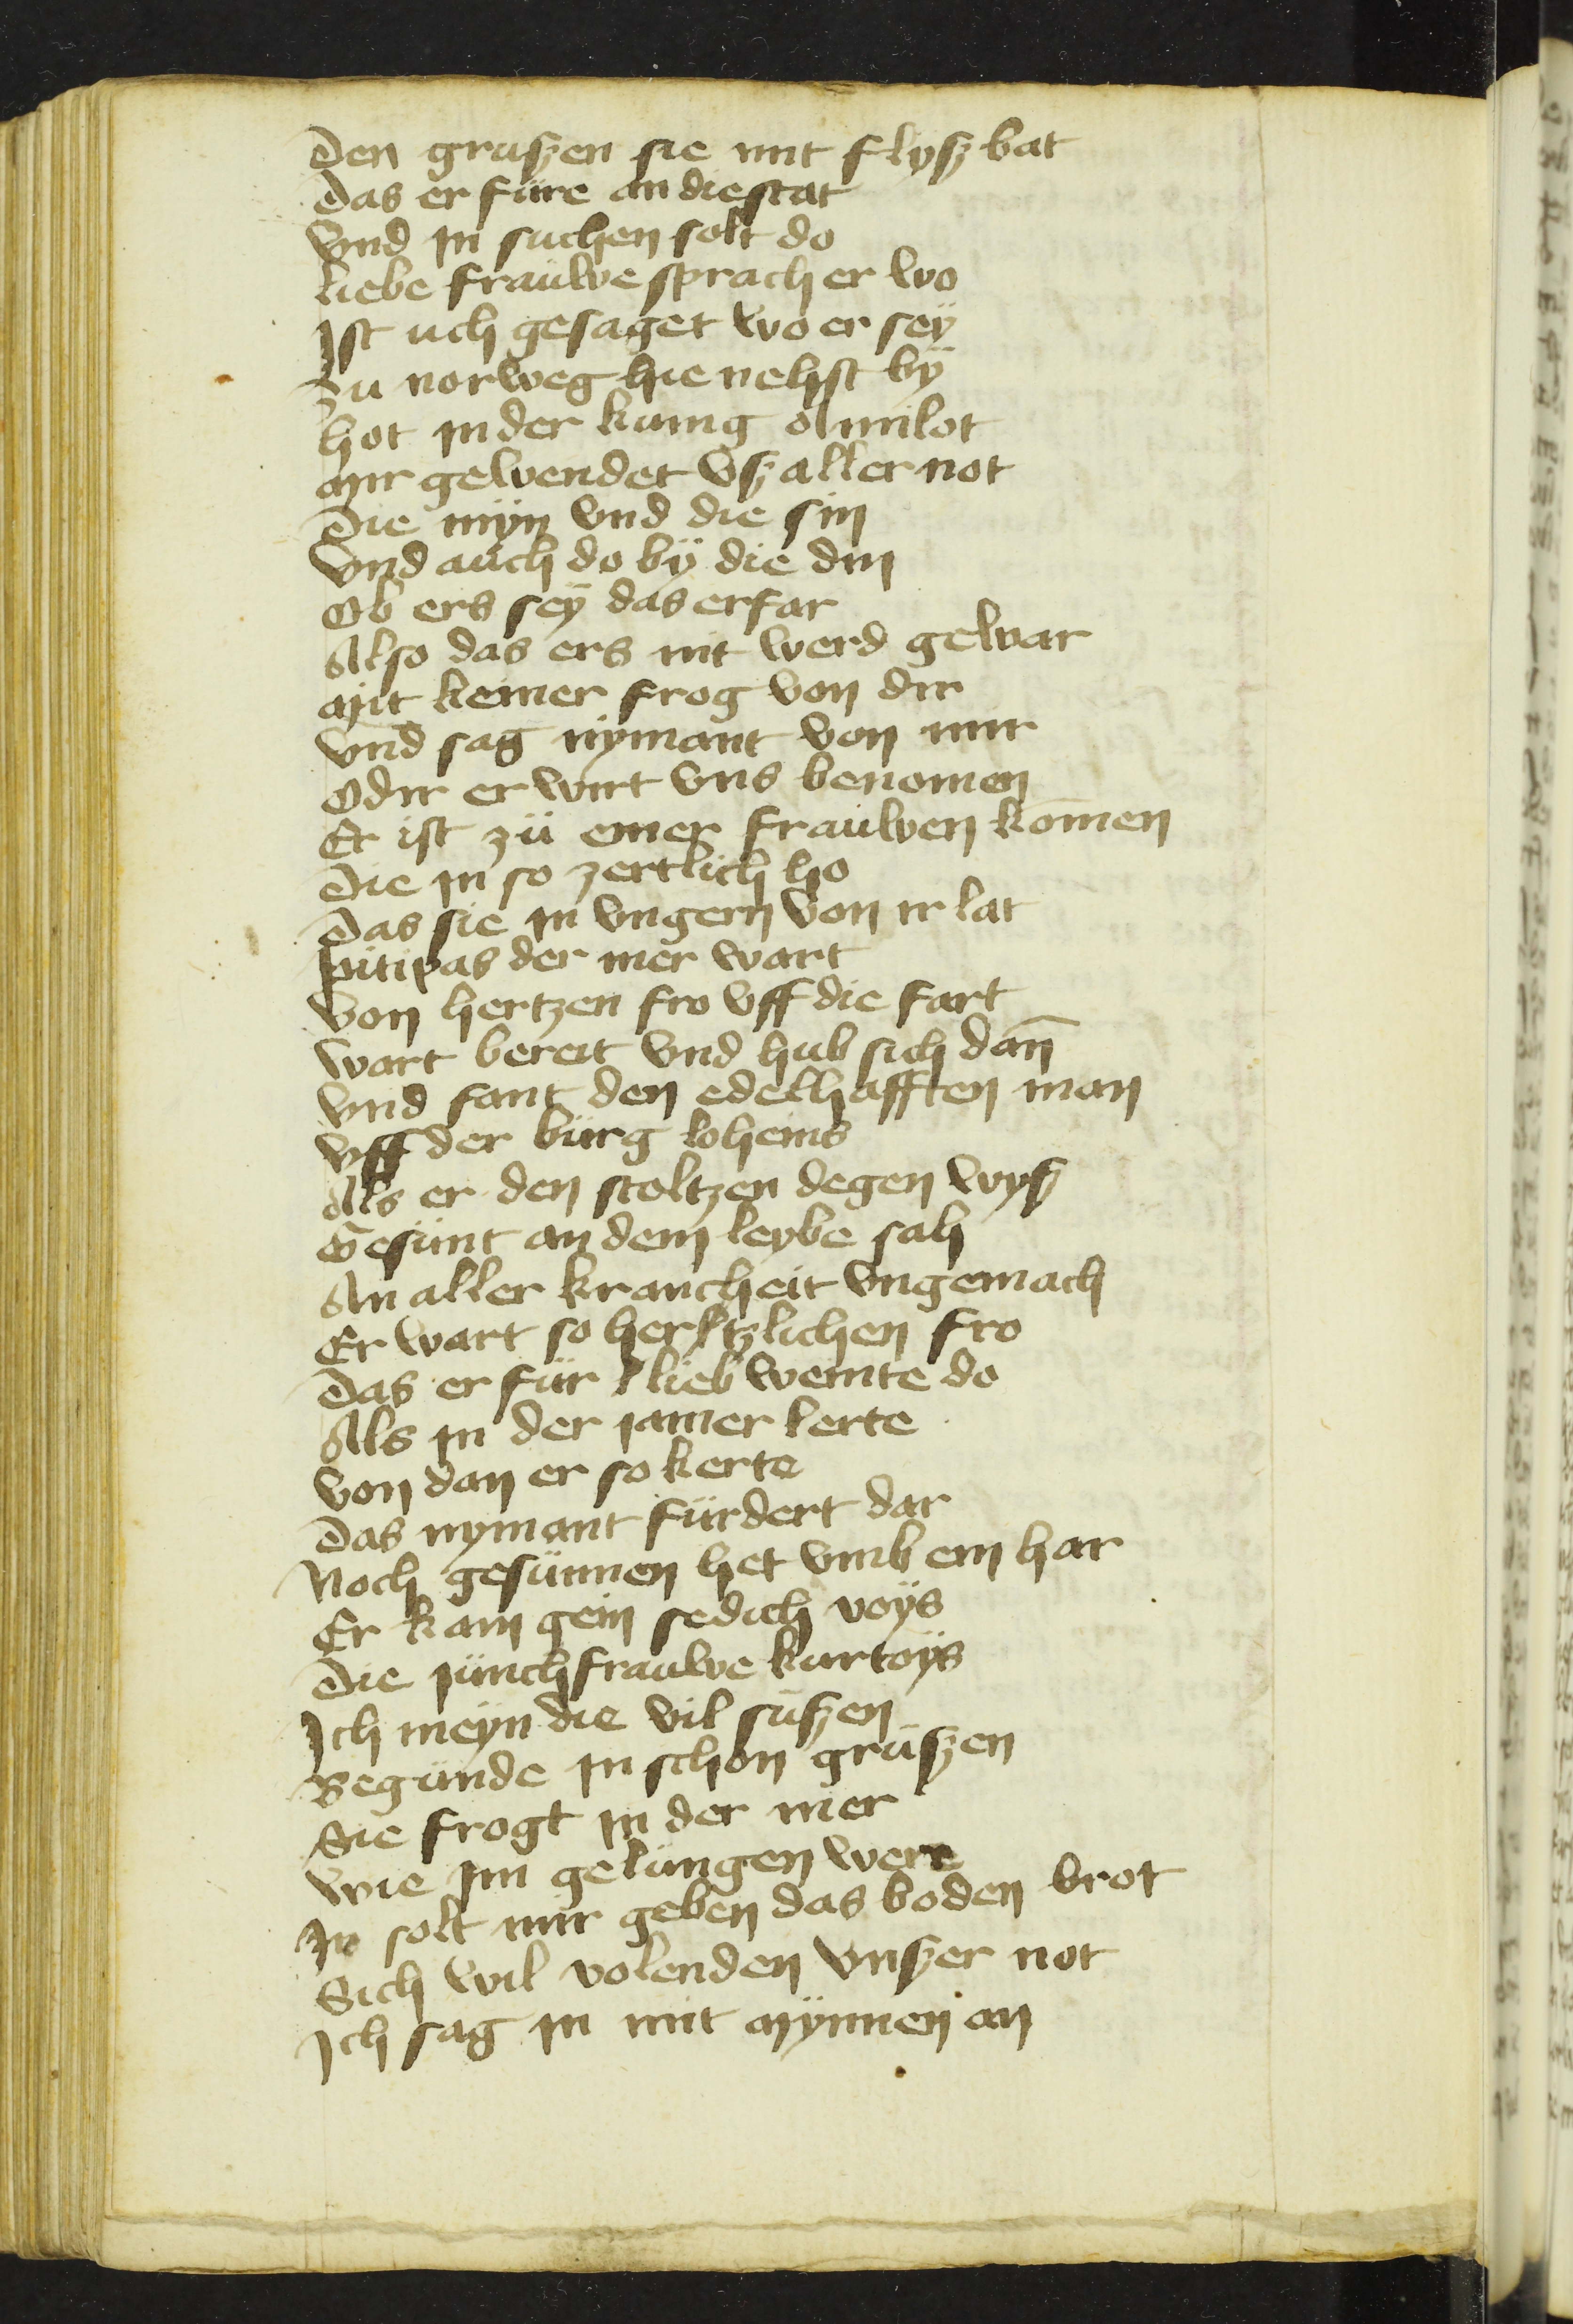 Den gruszen sie mit flysz bat
Das er füre an die stat
Vnd in suchen solt do
liebe frauwe sprach er wo
Ist uch gesaget wo er sey
Zu norweg hie nehst by
Hot in der kunig Amilot
Mir gewendet vsz aller not
Die myn vnd die sin
Vnd auch do by die din
Ob ers sey das erfar
Also das ers nit werd gewar
Mit keiner frog von dir
Vnd sag nymant von mir
Odir er wirt vns benomen
Er ist zü einer frauwen komen
Die in so zertlich ho
Das sie in vngern von ir lat
Pitipas der mer wart
Von hertzen fro vff die fart
Wart bereit vnd hub sich dan̄
Vnd fant den edelhafften man
Vff der bürg loheins
Als er den stoltzen degen wysz
Gesünt an dem leybe sah
An aller krancheit vngemach
Er wart so hertzlichen fro
Das er für lieb weinte do
Als in der iamer lerte
Von dan er so kerte
Das nymant fürdert dar
Noch gesünnen het vmb ein har
Er kam gein sedich voys
Die jünchfrauwe kurtoys
Ich meyn die vil süszen
Begünde in schon grüszen
Sie frogt in der mer
Wie im gelüngen were
Ir solt mir geben das boden brot
Sich wil volenden vnszer not
Ich sag in mit mynnen an